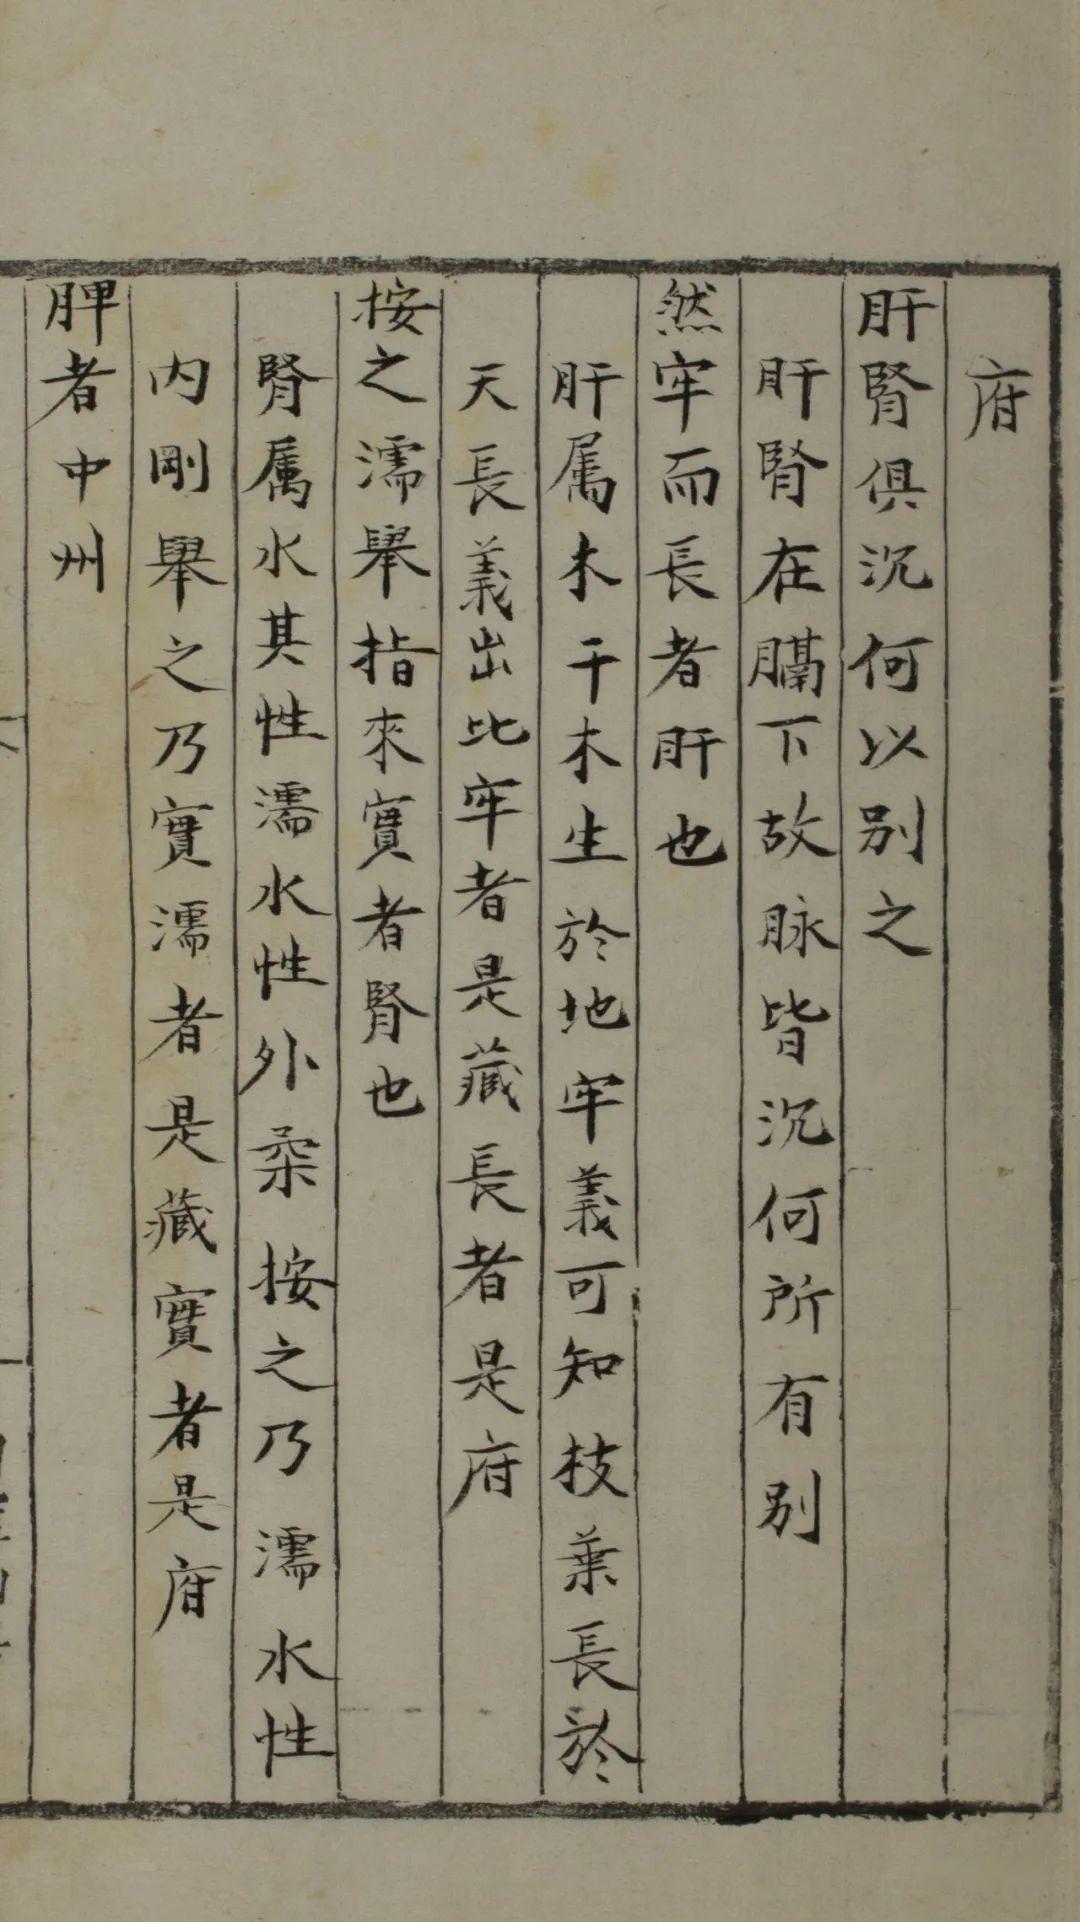 府
肝腎俱沉何以别之
肝腎在膈下故脉皆沉何所有别
然牢而長者肝也
肝属木干木生於地牢義可知技葉長於
天長義出比牢者是藏長者是府
按之濡舉指來實者腎也
腎属水其性濡水性外柔按之乃濡水性
内剛舉之乃實濡者是藏實者是府
脾者中州